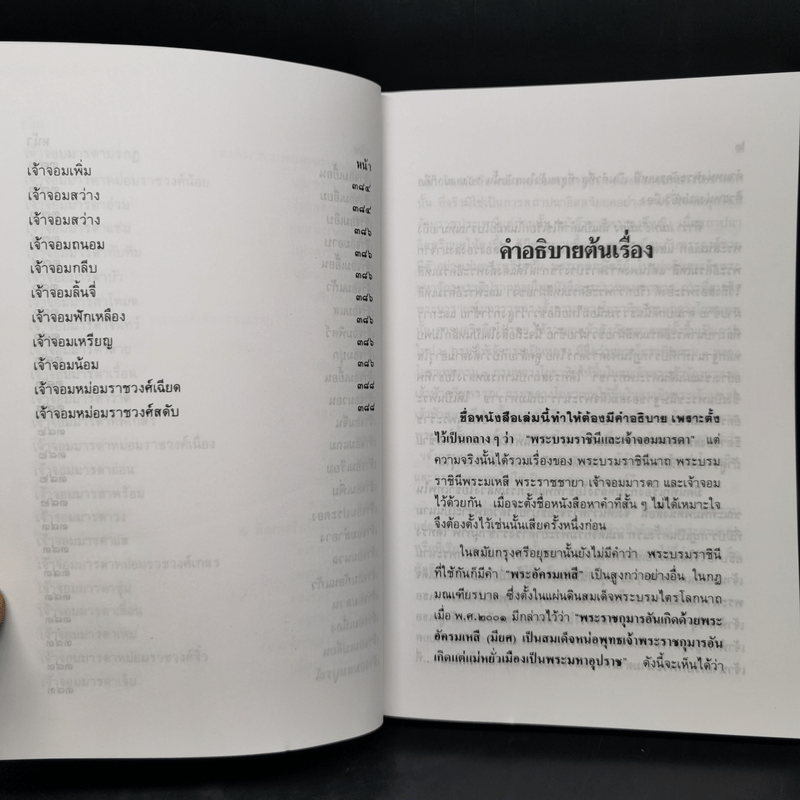 หน้า
เจ้าจอมเพิ่ม ๓๘๔
เจ้าจอมสว่าง ๓๘๔
เจ้าจอมสว่าง ๓๘๖
เจ้าจอมถนอม ๓๘๖
เจ้าจอมกลีบ ๓๘๖
เจ้าจอมลิ้นจี่ ๓๘๖
เจ้าจอมฟักเหลือง ๓๘๖
เจ้าจอมเหรียญ ๓๘๖
เจ้าจอมน้อม ๓๘๖
เจ้าจอมหม่อมราชวงศ์เฉียด ๓๘๘
เจ้าจอมหม่อมราชวงศ์สดับ ๓๘๘
คำอธิบายต้นเรื่อง
ชื่อหนังสือเล่มนี้ทำให้ต้องมีคำอธิบาย เพราะตั้ง
ไว้เป็นกลาง ๆ ว่า "พระบรมราชินีและเจ้าจอมมารดา" แต่
ความจริงนั้นได้รวมเรื่องของ พระบรมราชินีนาถ พระบรม
ราชินีพระมเหสี พระราชชายา เจ้าจอมมารดา และเจ้าจอม
ไว้ด้วยกัน เมื่อจะตั้งชื่อหนังสือหาคำที่สั้น ๆ ไม่ได้เหมาะใจ
จึงต้องตั้งไว้เช่นนั้นเสียครั้งหนึ่งก่อน
ในสมัยกรุงศรีอยุธยานั้นยังไม่มีคำว่า พระบรมราชินี
ที่ใช้กันก็มีคำ "พระอัครมเหสี" เป็นสูงกว่าอย่างอื่น ในกฎ
มณเฑียรบาล ซึ่งตั้งในแผ่นดินสมเด็จพระบรมไตรโลกนาถ
เมื่อ พ.ศ.๒๐๐๑ มีกล่าวไว้ว่า "พระราชกุมารอันเกิดด้วยพระ
อัครมเหสี (มียศ) เป็นสมเด็จหน่อพุทธเจ้าพระราชกุมารอัน
เกิดแต่แม่หยั่วเมืองเป็นพระมหาอุปราช" ดังนี้จะเห็นได้ว่า